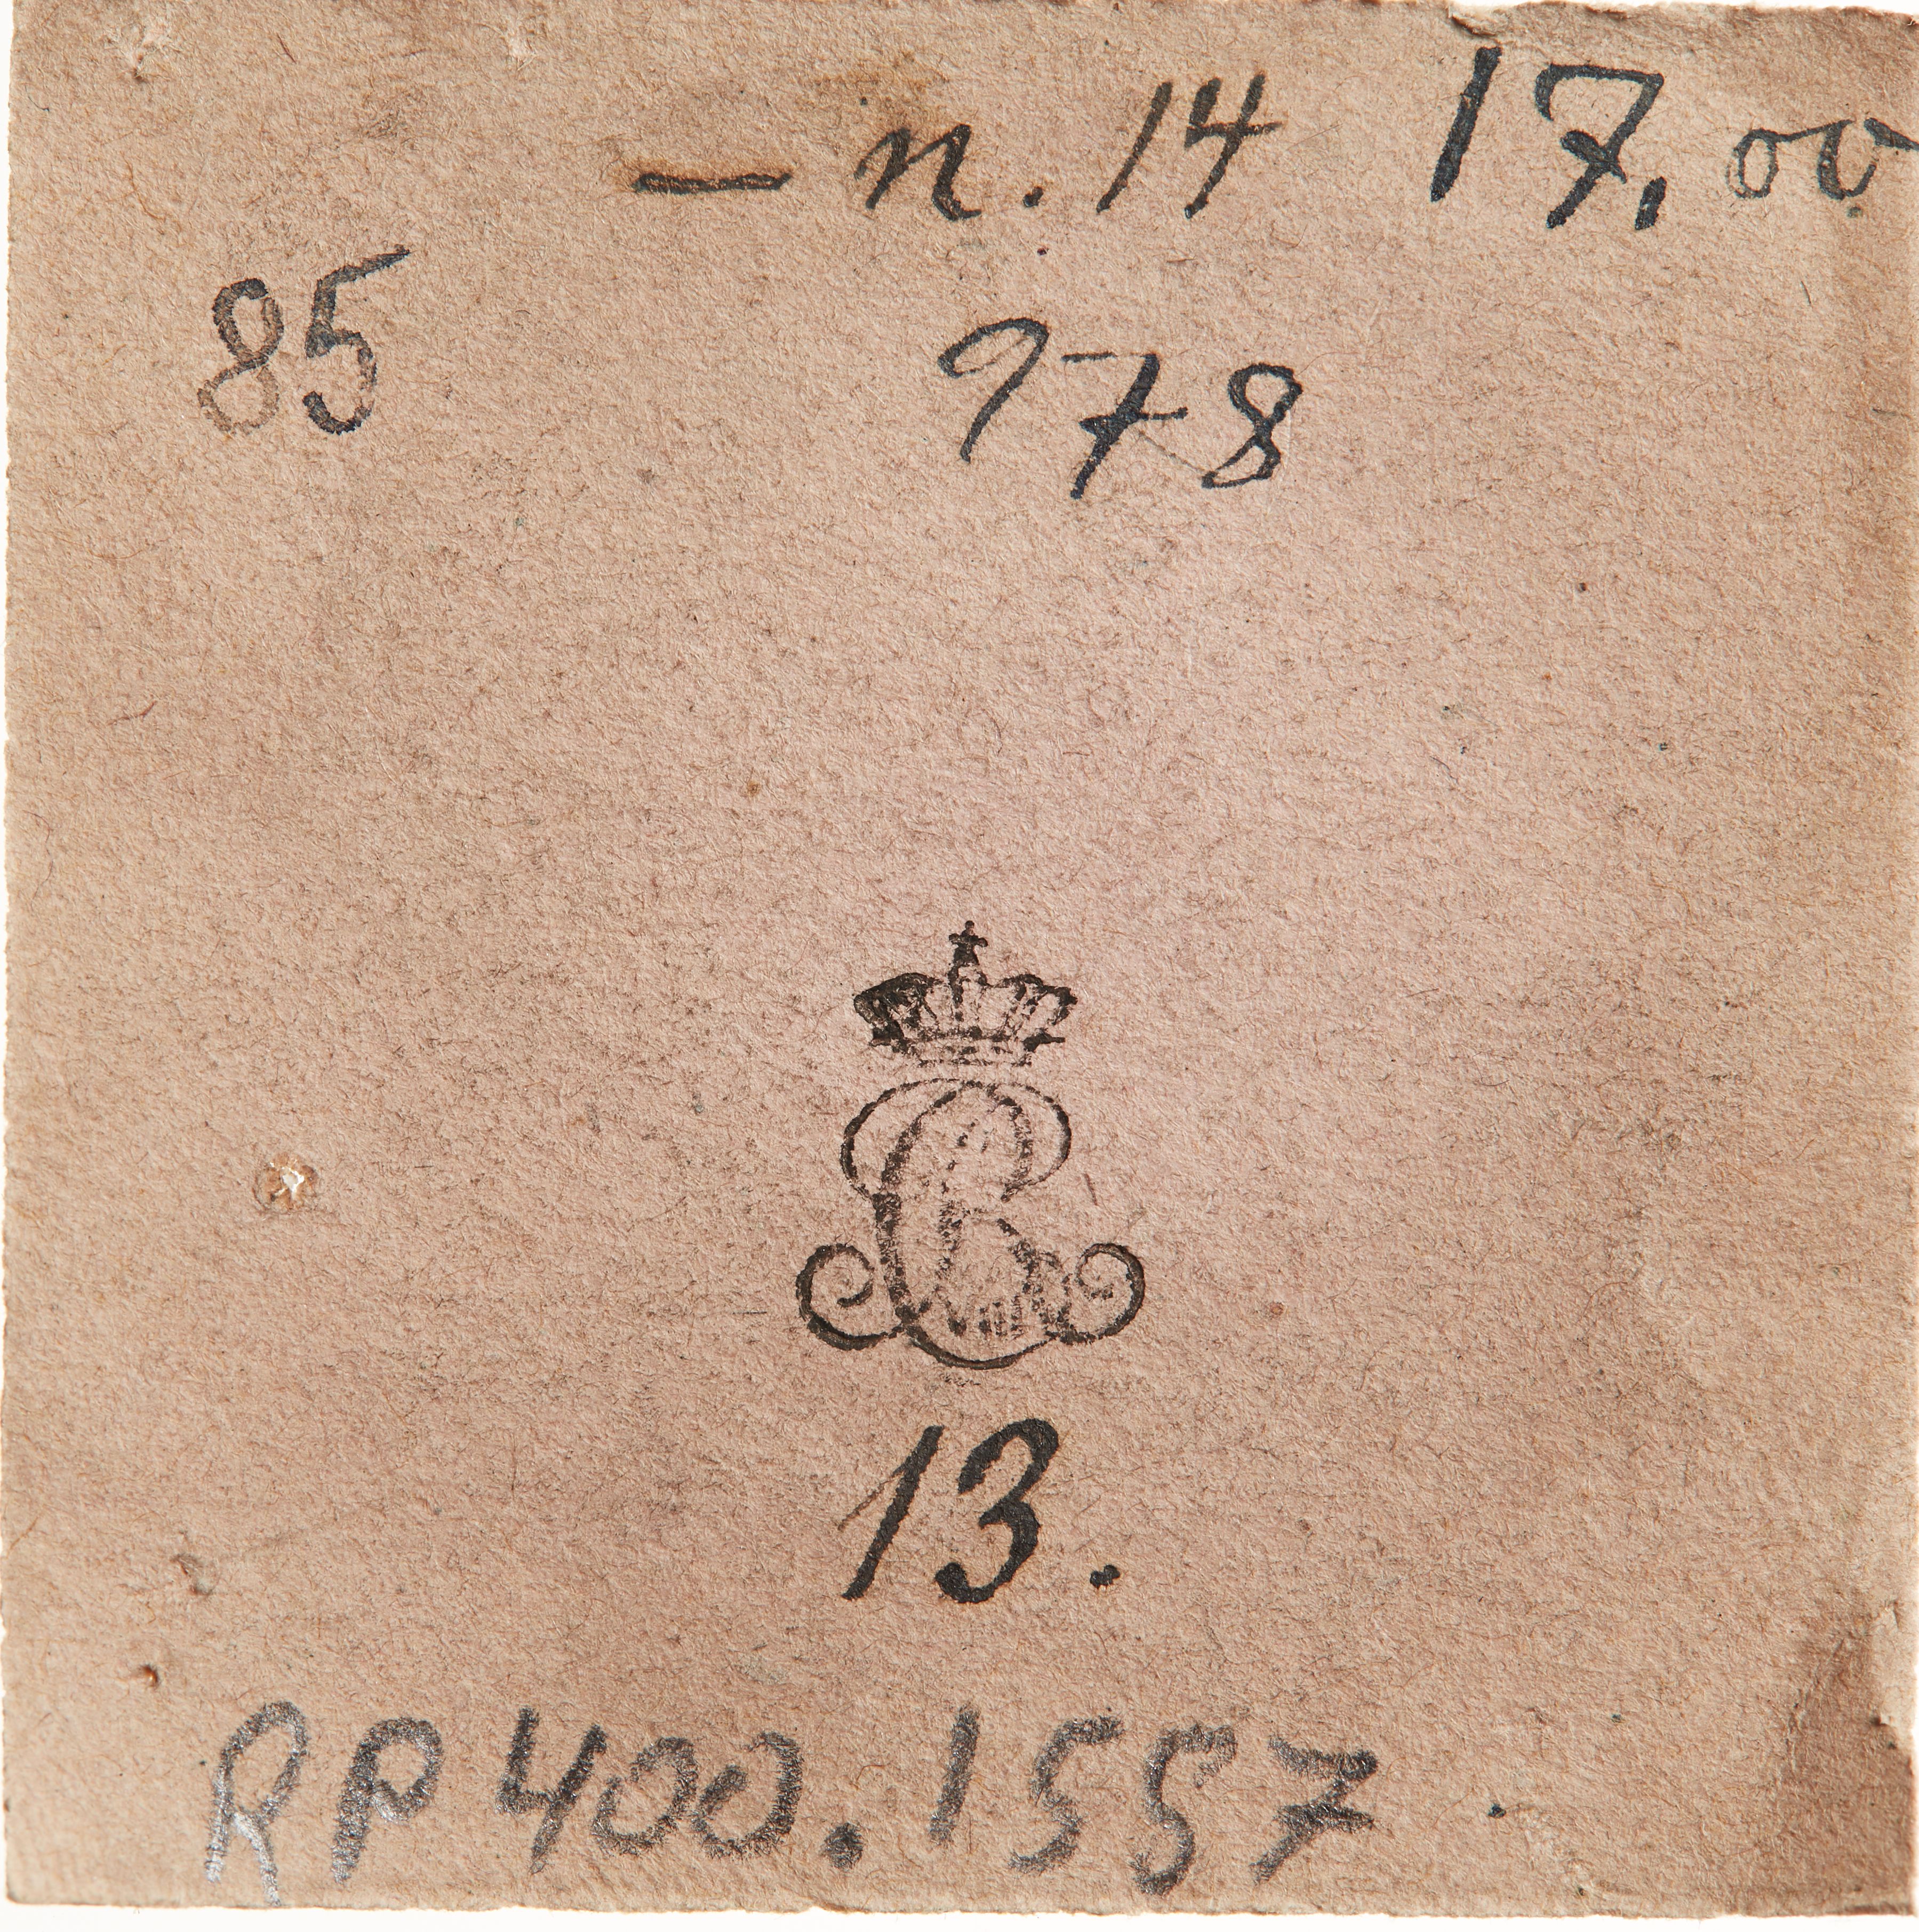 — n. 14 17,00
85 978
13.
RP400.1557